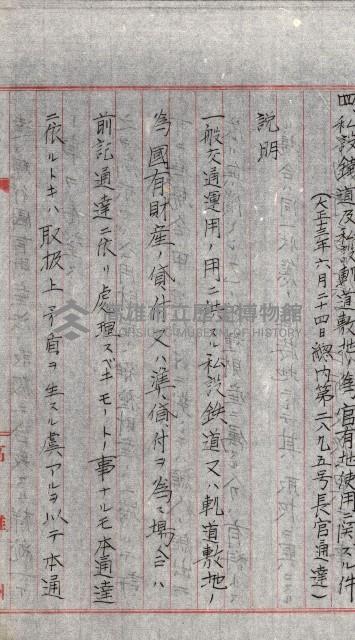 四、私設鉄道及私設軌道敷地等官有地使用ニ関スル件
(大正十三年六月二十四日總内第二八九五号長官通達)
説明
一般交通運用ノ用ニ供スル私設鉄道又ハ軌道敷地ノ
為國有財産ノ貸付又ハ準貸付ヲ為ス場合ハ
前記通達ニ依リ處理スベキモノトノ事ナルモ本通達
ニ依ルトキハ取扱上矛盾ヲ生スル虞アルヲ以テ本通
高雄市立歷史博物館
高雄州